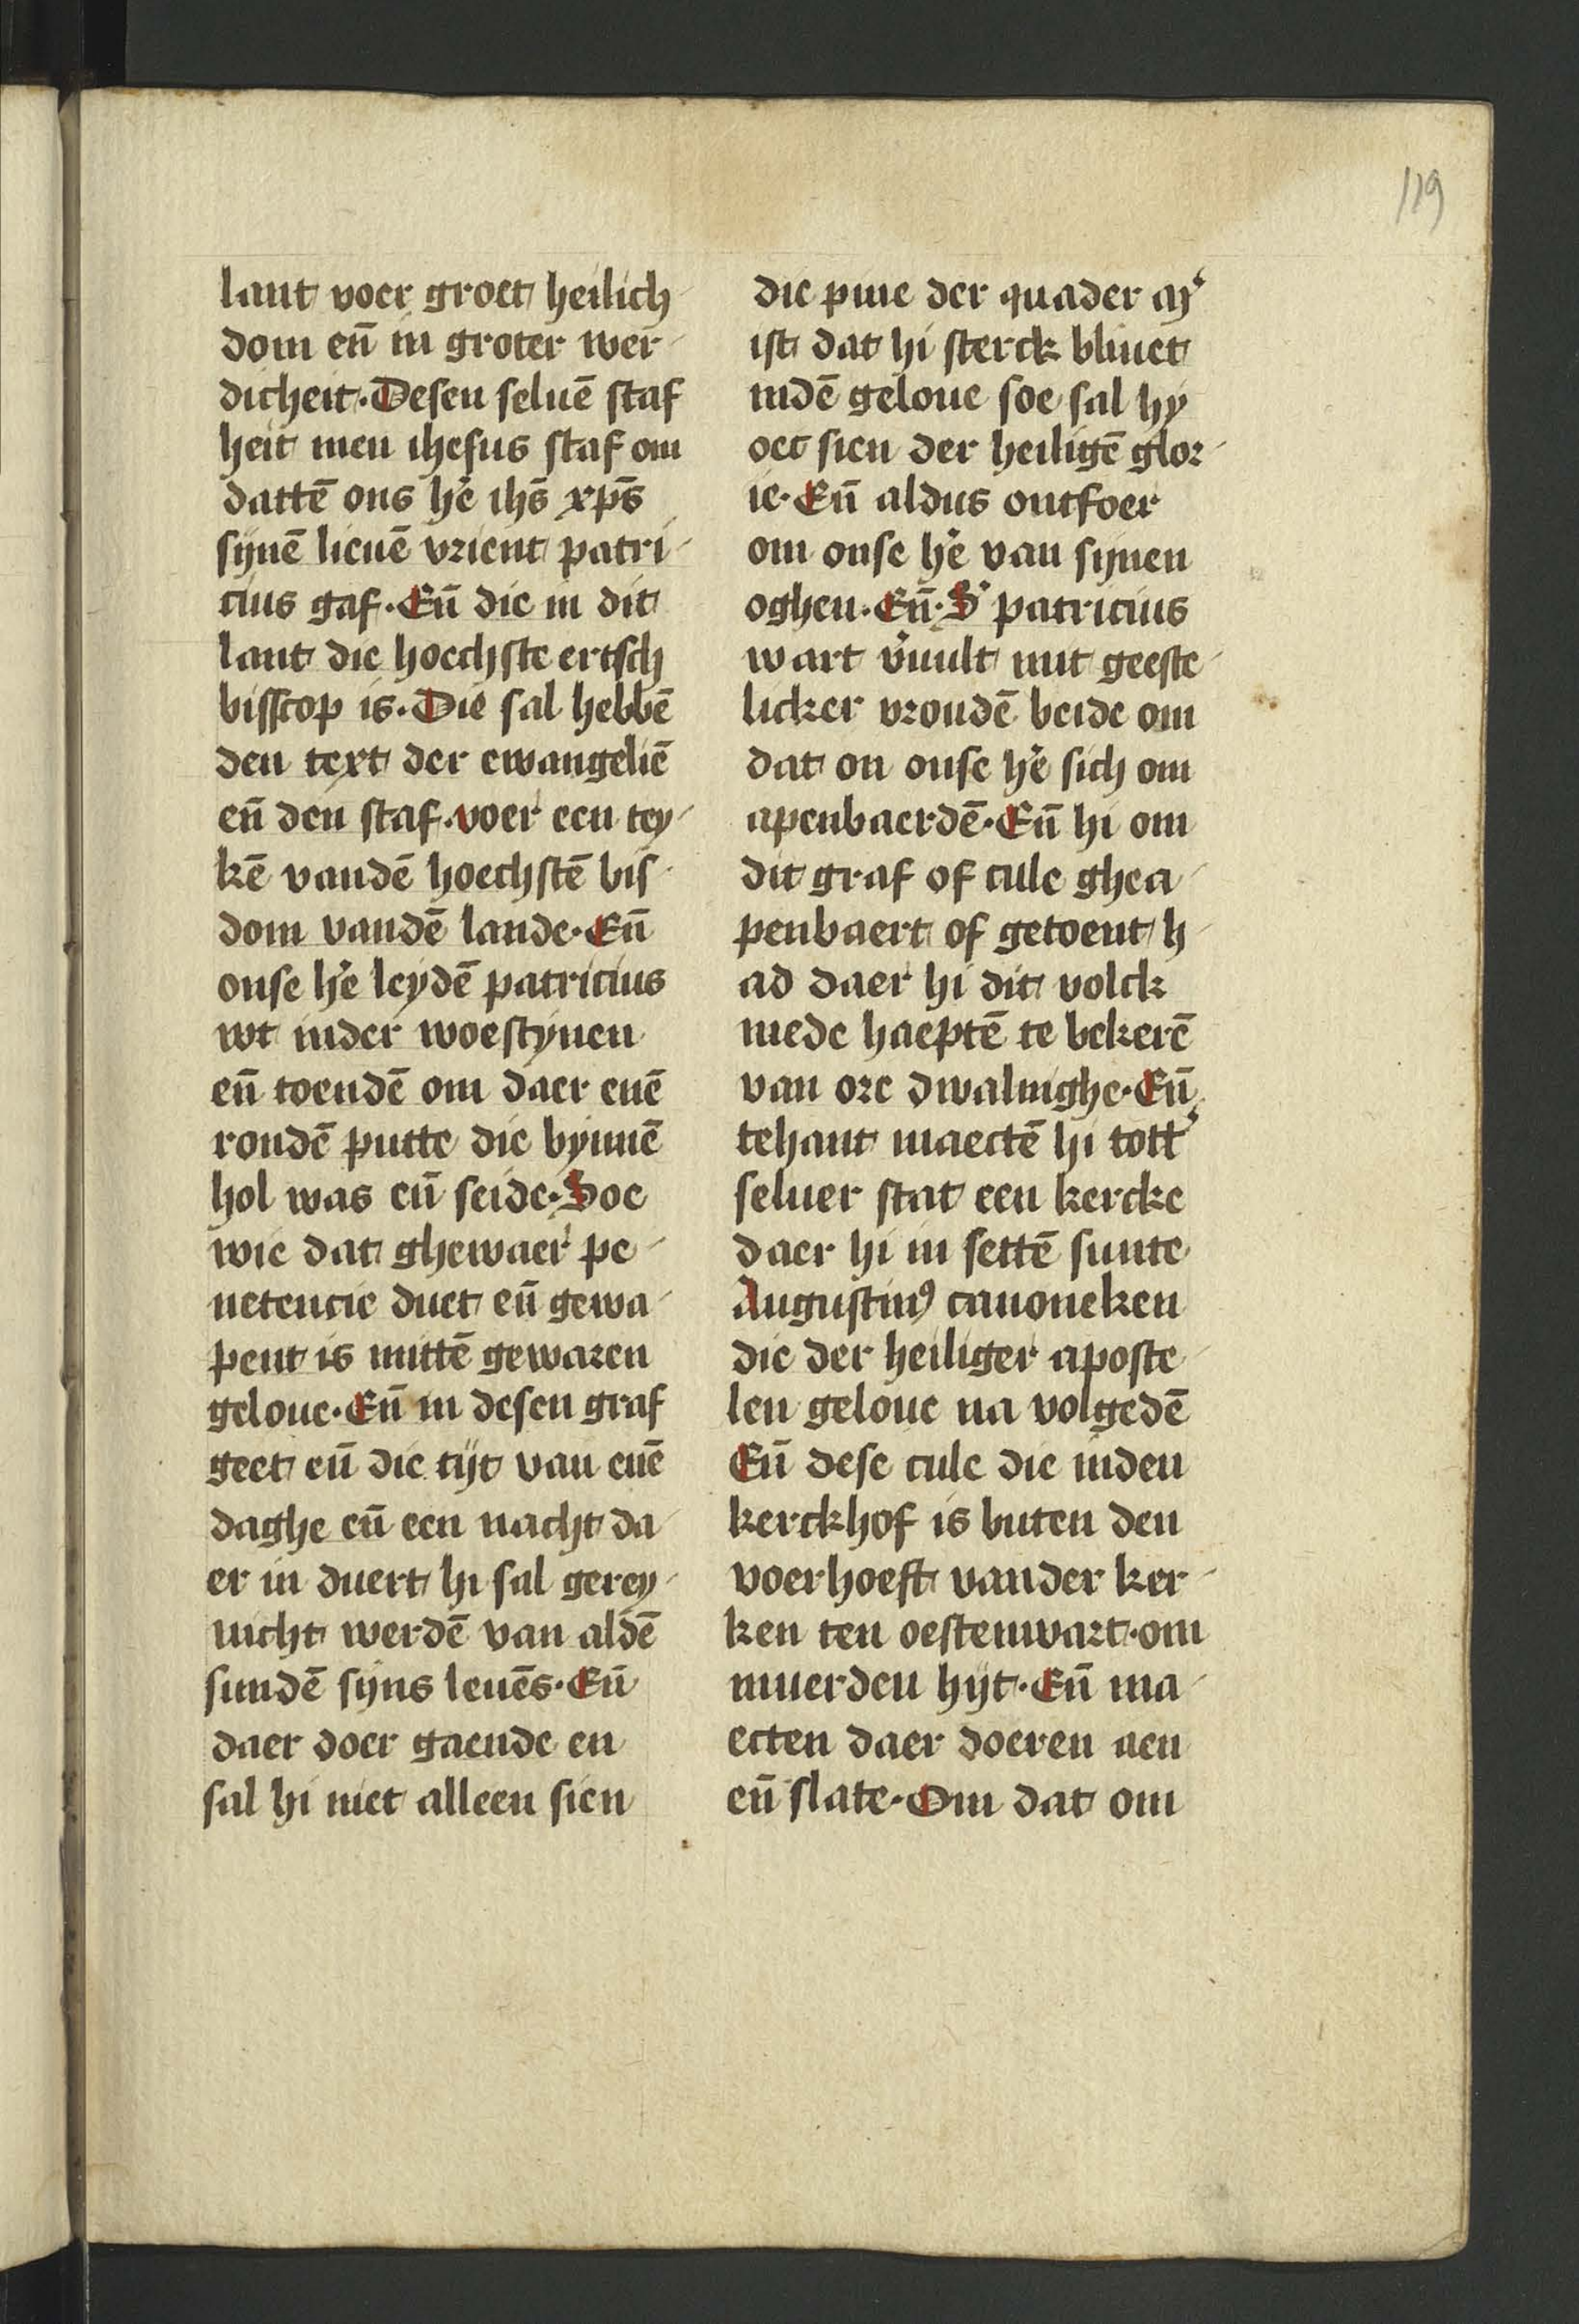 119
lant voer groet heilich
dom eñ in groter wer
dicheit. Desen seluē staf
heit men ihesus staf om
dattē ons hē ihs̄ xp̄s
synē lieuē vrient patri
cius gaf. Eñ die in dit
lant die hoechste ertsch
bisscop is. Die sal hebbē
den text der ewangeliē
eñ den staf. voer een tey
kē vandē hoechstē bis
dom vandē lande. Eñ
onse hē leydē patricius
wt inder woestynen
eñ toendē om daer enē
rondē putte die bynnē
hol was eñ seide. Soe
wie dat ghewaer pe
netencie duet eñ gewa
pent is mittē gewaren
geloue. Eñ in desen graf
geet eñ die tijt van enē
daghe eñ een nacht da
er in duert hi sal gerey
nicht werdē van aldē
sundē sijns leuēs. Eñ
daer doer gaende en
sal hi niet alleen sien
die pine der quader mʼ
ist dat hi sterck bliuet
indē geloue soe sal hy
oec sien der heiligē glor
ie. Eñ aldus ontfoer
om onse hē van synen
oghen. Eñ. Sʼ patricius
wart vʼuult mit geeste
licker vroudē beide om
dat on onse hē sich om
apenbaerdē. Eñ hi om
dit graf of cule ghea
penbaert of getoent h
ad daer hi dit volck
mede haeptē te bekerē
van ore dwalinghe. Eñ
tehant maectē hi tottʼ
seluer stat een kercke
daer hi in settē sunte
Augustinꝰ canoneken
die der heiliger aposte
len geloue na volgedē
Eñ dese cule die inden
kerckhof is buten den
voerhoeft vander ker
ken ten oestenwart. om
muerden hijt. Eñ ma
ecten daer doeren aen
eñ slate. Om dat om